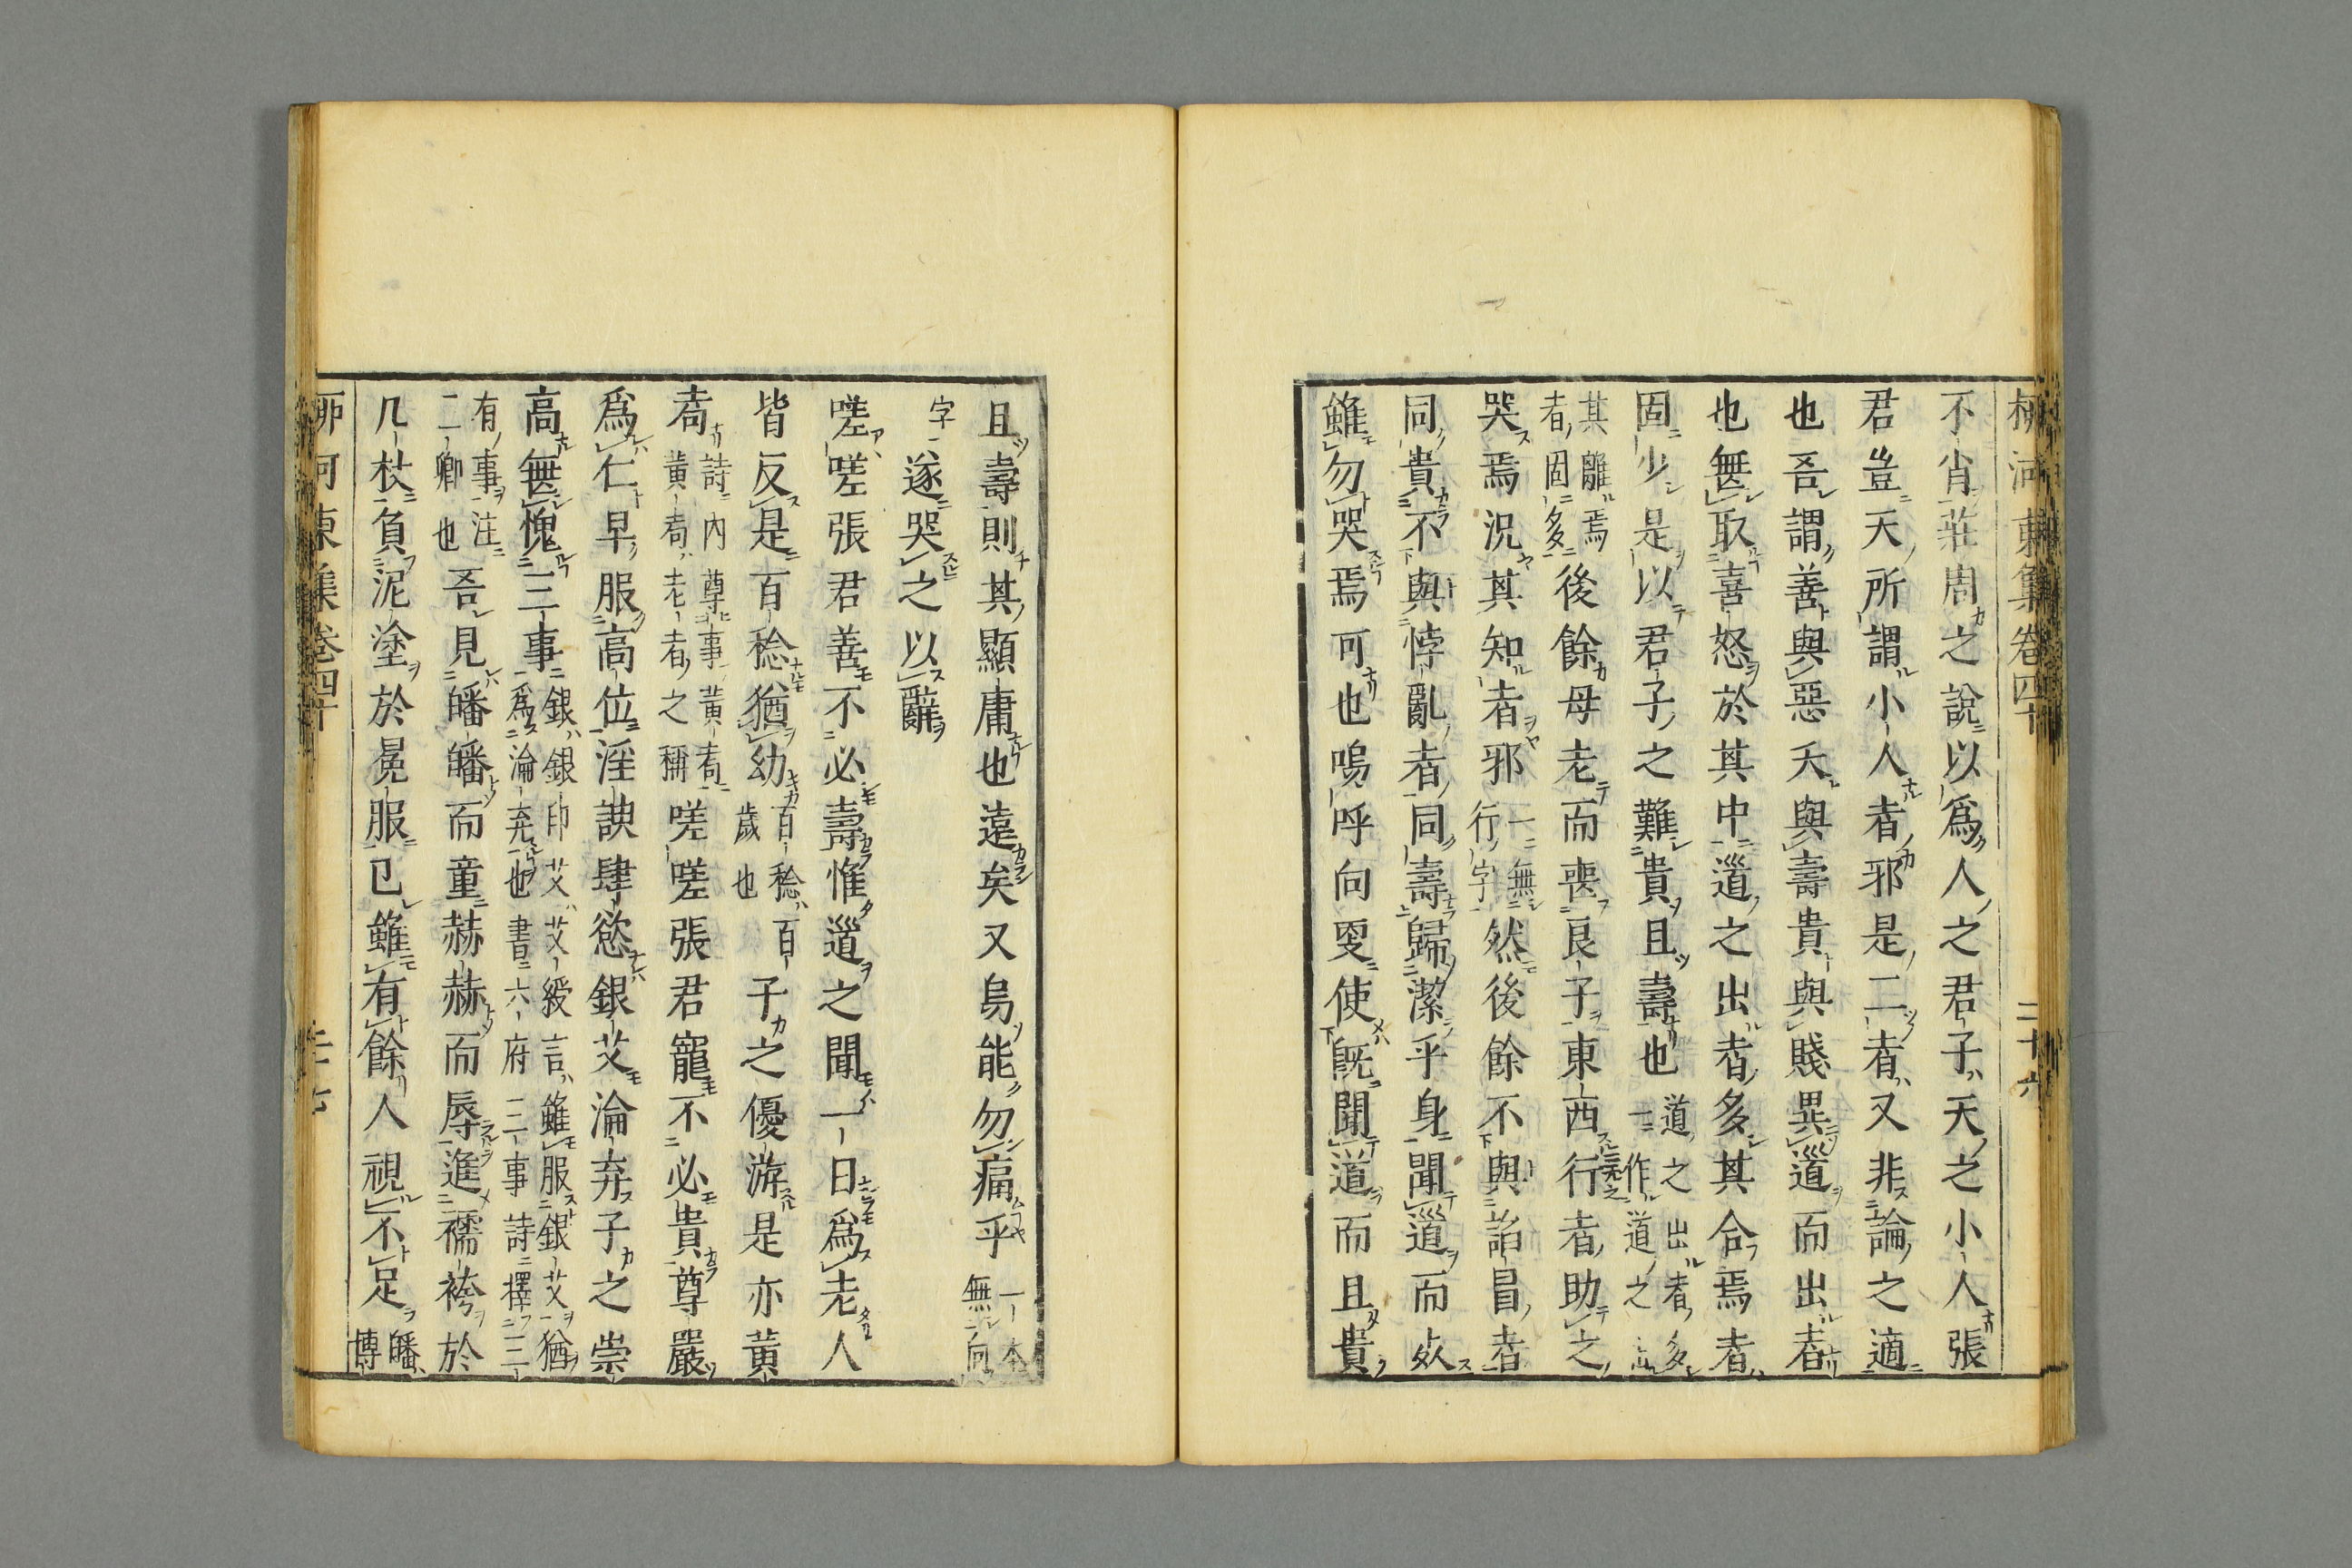 柳河東集卷四十　二十六
不肖莊周之說以爲人之君子天之小人張
君豈天所謂小人者邪是二者又非論之適
也吾謂善與惡夭與壽貴與賤異道而出者
也無取喜怒於其中道之出者多其合焉者
固少是以君子之難貴且壽也道之出者多
一作道之出
其離焉
者固多後餘母老而喪良子東西行者助之
哭焉況其知者邪一無
行字然後餘不與諂冒者
同貴不與悖亂者同壽歸潔乎身聞道而歿
雖勿哭焉可也嗚呼向𠭊使既聞道而且貴
且壽則其顯庸也遠矣又烏能勿痛乎一本
無向
字遂哭之以辭
嗟嗟張君善不必壽惟道之聞一日爲老人
皆反是百稔猶幼百稔百
歲也子之優游是亦黃
耇詩內尊事黃耇
黃耇老者之稱嗟嗟張君寵不必貴尊嚴
爲仁早服高位淫諛肆慾銀艾淪弃子之崇
高無愧三事銀銀印艾艾綬言雖服銀艾猶
爲淪弃也書六府三事詩擇三
有事注
二卿也吾見皤皤而童赫赫而辱進襦袴於
几杖負泥塗於冕服已雖有餘人視不足皤
博
柳河東集卷四十　二十七